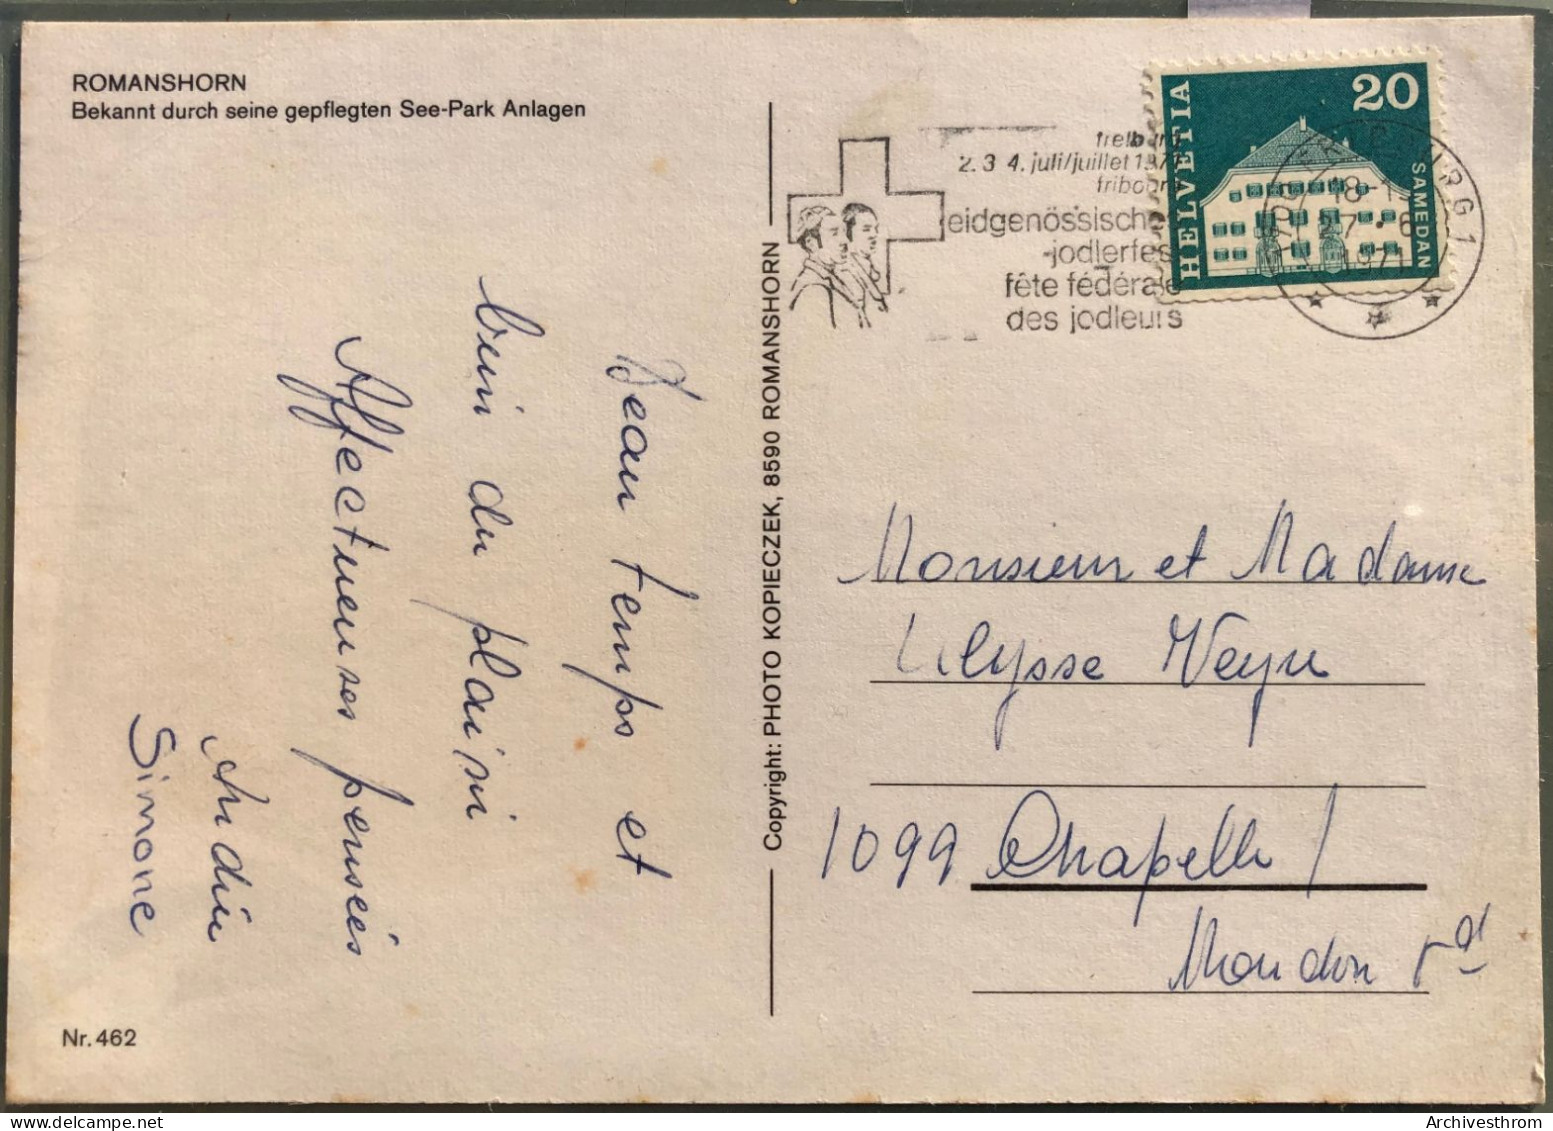 ROMANSHORN
Bekannt durch seine gepflegten See-Park Anlagen
Beau temps et
bien du plaisir
Affectueuses pensées
Simone
Nr. 462
Copyright: PHOTO KOPIECZEK, 8590 ROMANSHORN
freiburg
2. 3 4. juli/juillet 1971
fribourg
eidgenössisches
jodlerfest
fête fédérale
des jodleurs
HELVETIA
20
SAMEDAN
18-1
27 • 6
1971
Monsieur et Madame
Ulysse
1099 Chapelle /
Moudon